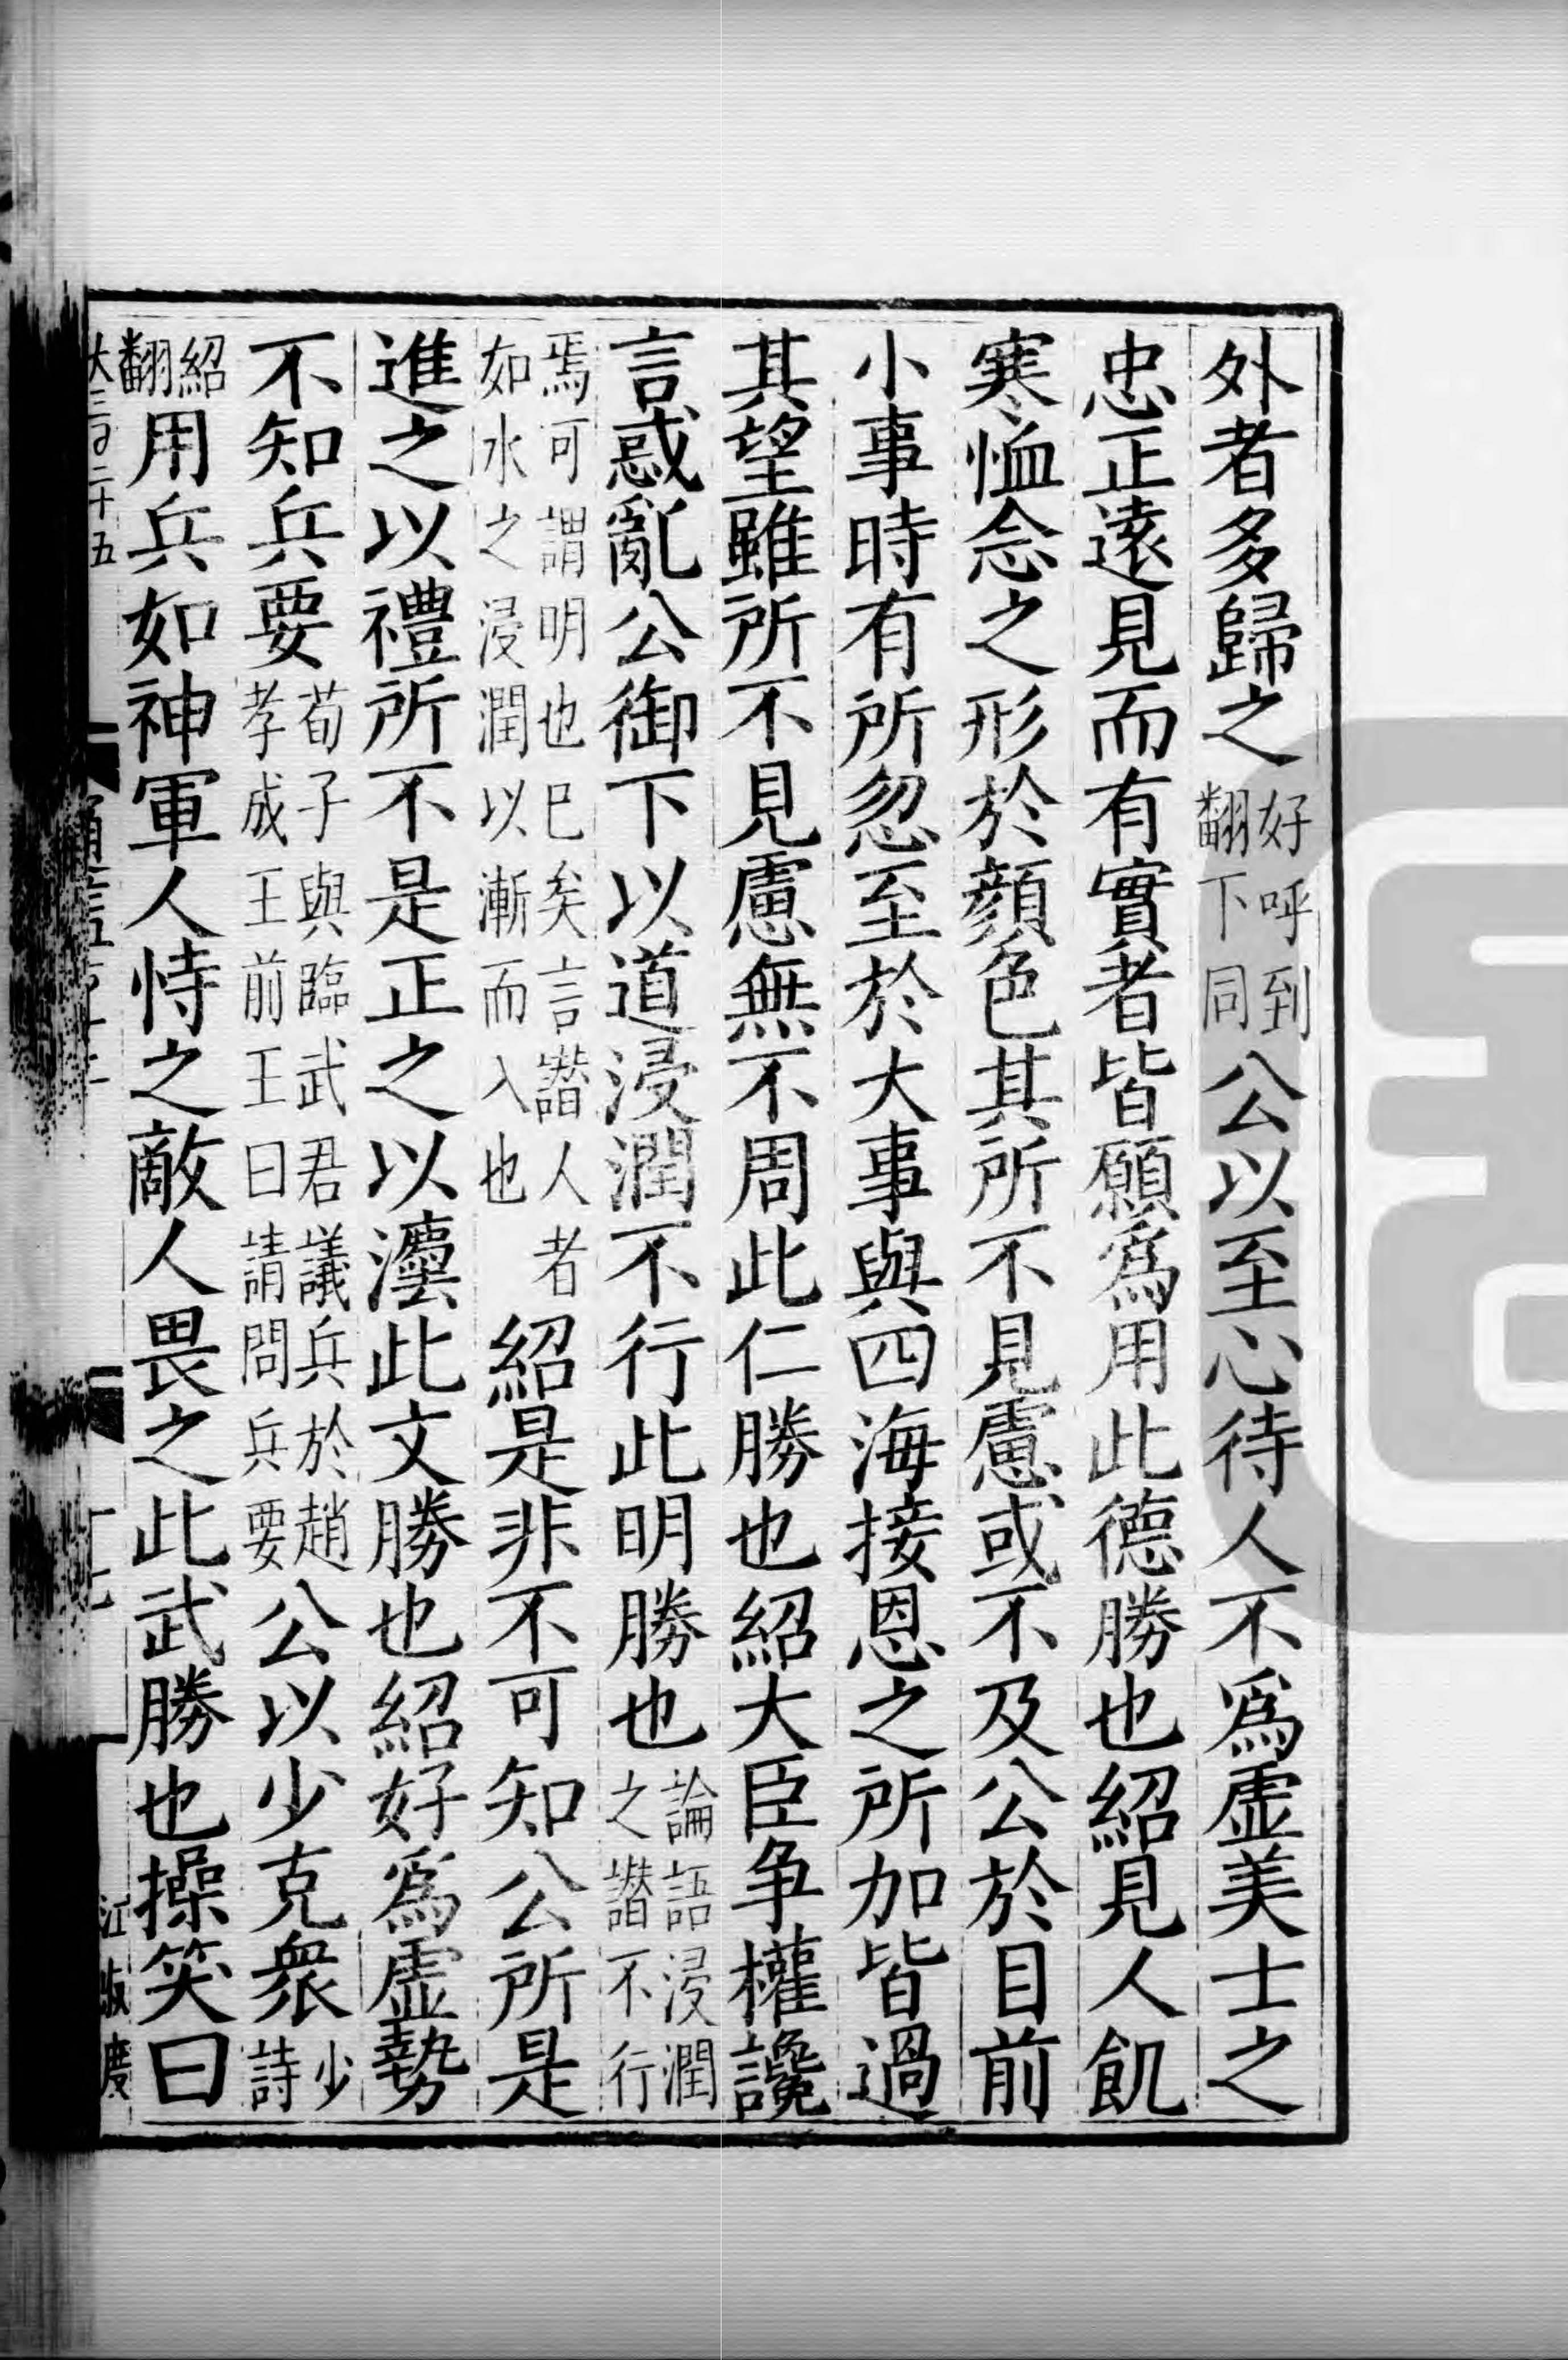 外者多歸之好呼到翻下同公以至心待人不爲虛美士之
忠正遠見而有實者皆願爲用此德勝也紹見人飢
寒恤念之形於顏色其所不見慮或不及公於目前
小事時有所忽至於大事與四海接恩之所加皆過
其望雖所不見慮無不周此仁勝也紹大臣争權讒
言惑亂公御下以道浸潤不行此明勝也論語浸潤之譖不行
焉可謂明也巳矣言譖人者如水之浸潤以漸而入也紹是非不可知公所是
進之以禮所不是正之以灋此文勝也紹好爲虛勢
不知兵要荀子與臨武君議兵於趙孝成王前王曰請問兵要公以少克衆少詩
紹翻用兵如神軍人恃之敵人畏之此武勝也操笑曰